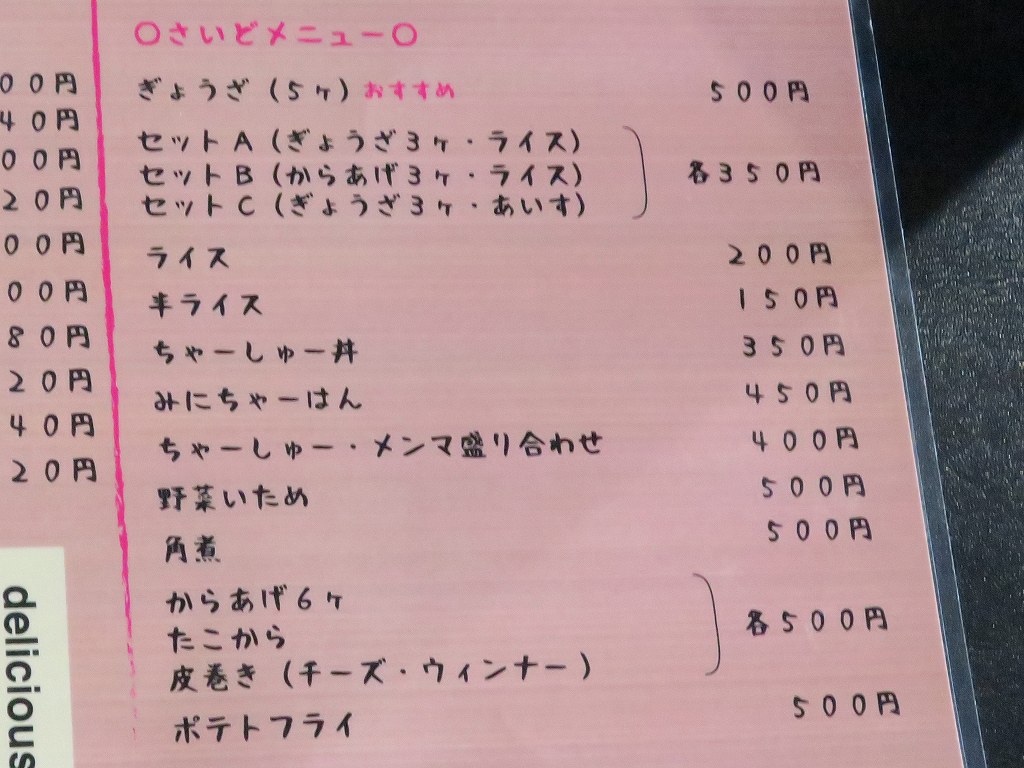 〇さいどメニュー〇
ぎょうざ(5ヶ)おすすめ 500円
セットA(ぎょうざ3ヶ・ライス)
セットB(からあげ3ヶ・ライス) 各350円
セットC(ぎょうざ3ヶ・あいす)
ライス 200円
半ライス 150円
ちゃーしゅー丼 350円
みにちゃーはん 450円
ちゃーしゅー・メンマ盛り合わせ 400円
野菜いため 500円
角煮 500円
からあげ6ヶ
たこから 各500円
皮巻き(チーズ・ウィンナー)
ポテトフライ 500円
00円
40円
00円
20円
00円
00円
80円
20円
40円
20円
delicious